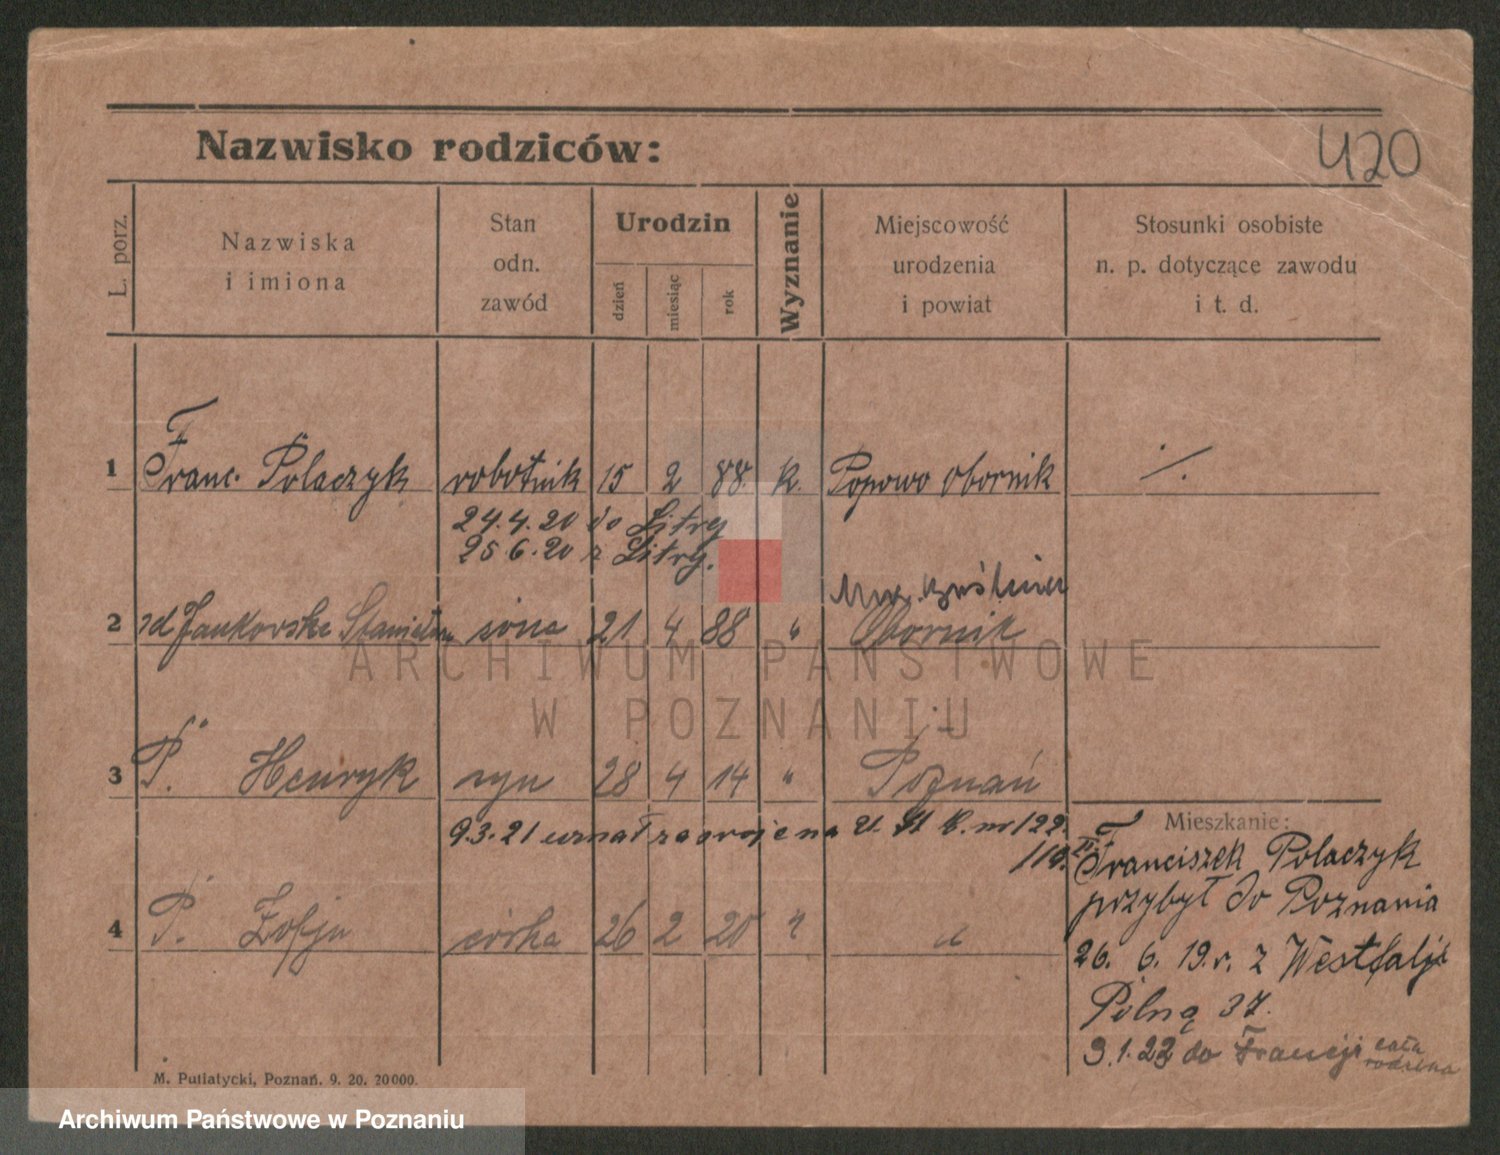 420
Nazwisko rodziców:
L. porz.
Nazwiska
i imiona
Stan
odn.
zawód
Urodzin
dzień
miesiąc
rok
Wyznanie
Miejscowość
urodzenia
i powiat
Stosunki osobiste
n. p. dotyczące zawodu
i t. d.
1 Franc. Polaczyk robotnik 15 2 88 k. Popowo Obornik ./.
24.4.20 do
25.6.20 z
2 zd Jankowska Stanisława żona 21 4 88 "
Obornik
3 P. Henryk syn 28 4 14 " Poznań
9.3.21 uznał za swoje na U. St. C. nr 122.
4 P. Zofja córka 26 2 20 " "
Mieszkanie:
Franciszek Polaczyk
przybył do Poznania
26. 6. 19.r. z Westfalji
Polną 37.
3.1.23 do Francji cała
rodzina
M. Putiatycki, Poznań. 9. 20. 20000.
ARCHIWUM PAŃSTWOWE
W POZNANIU
Archiwum Państwowe w Poznaniu